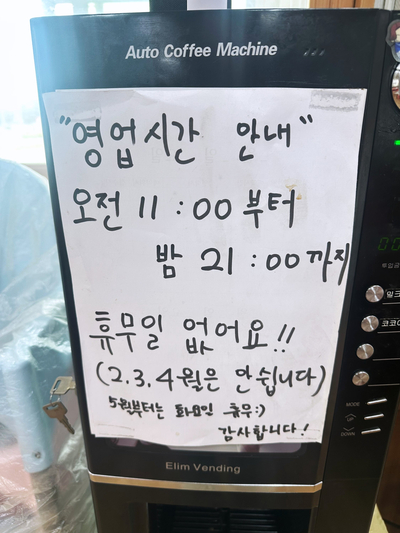 Auto Coffee Machine
"영업시간 안내"
오전 11:00부터
밤 21:00까지
휴무일 없어요!!
(2.3.4월은 안쉽니다)
5월부터는 화요일 휴무:)
감사합니다!
Elim Vending
밀크
코코아
MODE
DOWN